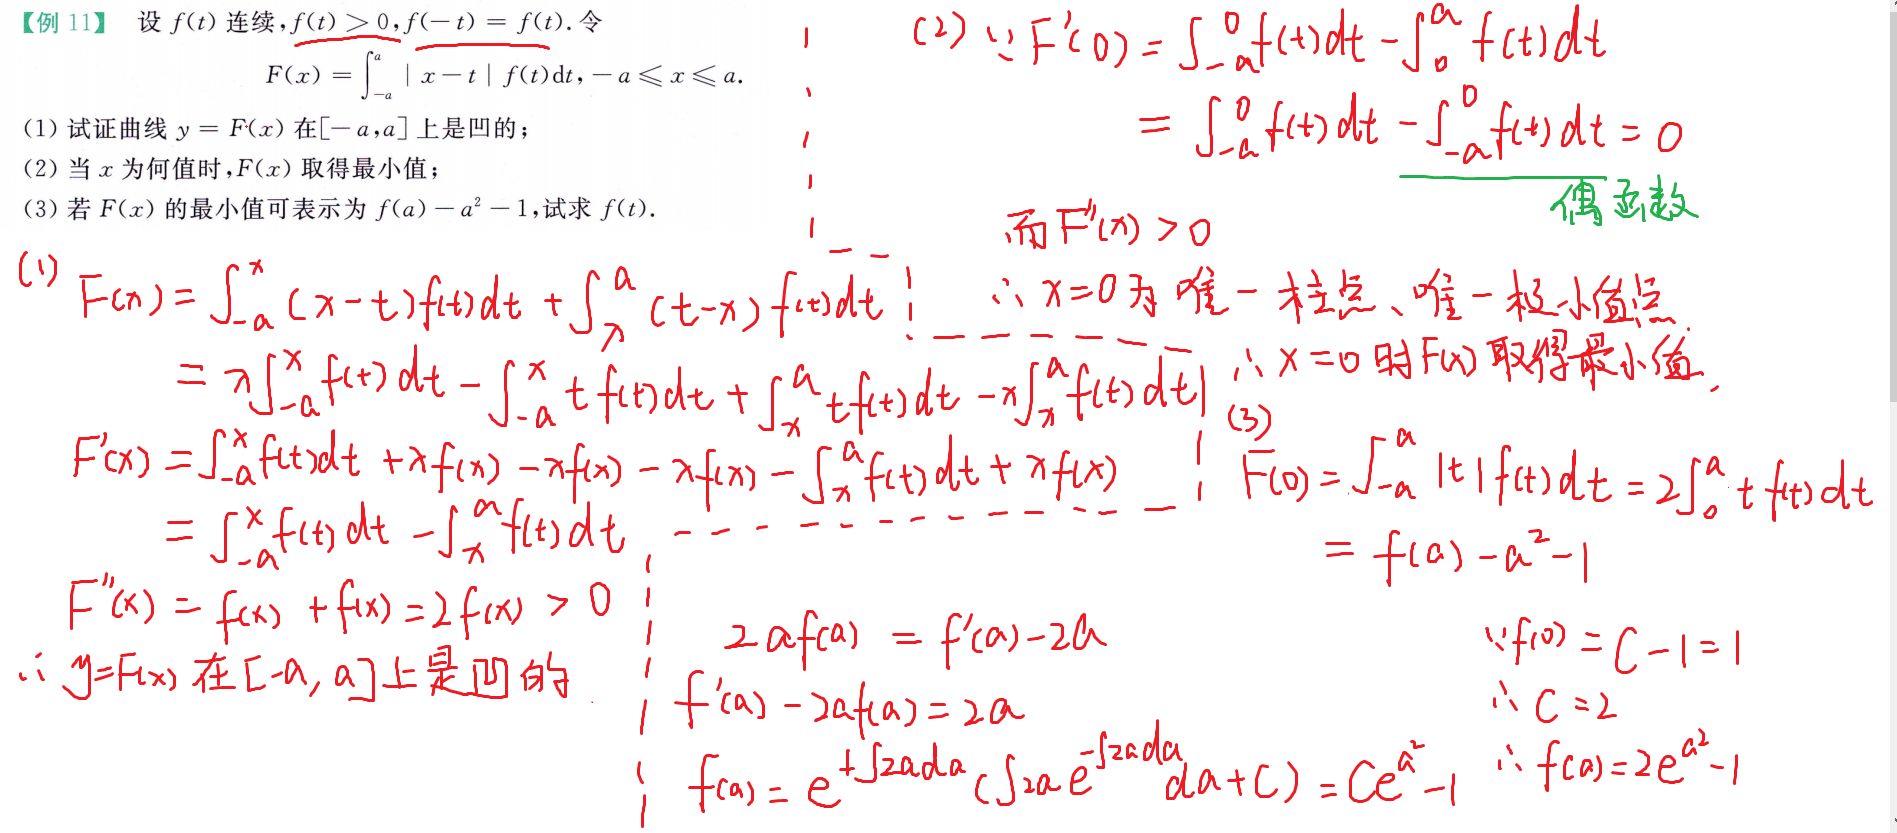 【例 11】 设 f(t) 连续,f(t) > 0,f(-t) = f(t).令
F(x) = ∫_{-a}^{a} |x-t| f(t)dt, -a ≤ x ≤ a.
(1) 试证曲线 y = F(x) 在[-a,a] 上是凹的;
(2) 当 x 为何值时,F(x) 取得最小值;
(3) 若 F(x) 的最小值可表示为 f(a)-a²-1,试求 f(t).
(1) F(x) = ∫_{-a}^{x} (x-t)f(t)dt + ∫_{x}^{a} (t-x)f(t)dt
= x∫_{-a}^{x} f(t)dt - ∫_{-a}^{x} t f(t)dt + ∫_{x}^{a} t f(t)dt - x∫_{x}^{a} f(t)dt
F'(x) = ∫_{-a}^{x} f(t)dt + xf(x) - xf(x) - xf(x) - ∫_{x}^{a} f(t)dt + xf(x)
= ∫_{-a}^{x} f(t)dt - ∫_{x}^{a} f(t)dt
F''(x) = f(x) + f(x) = 2f(x) > 0
∴ y=F(x) 在[-a, a]上是凹的.
(2) ∵ F'(0) = ∫_{-a}^{0} f(t)dt - ∫_{0}^{a} f(t)dt
= ∫_{-a}^{0} f(t)dt - ∫_{-a}^{0} f(t)dt = 0
偶函数
而 F''(x) > 0
∴ x=0 为唯一驻点、唯一极小值点.
∴ x=0 时F(x) 取得最小值.
(3)
F(0) = ∫_{-a}^{a} |t| f(t)dt = 2∫_{0}^{a} t f(t)dt
= f(a) - a² - 1
2a f(a) = f'(a) - 2a
f'(a) - 2af(a) = 2a
f(a) = e^{+∫2ada} (∫2a e^{-∫2ada} da + C) = Ce^{a²} - 1
∵ f(0) = C - 1 = 1
∴ C = 2
∴ f(a) = 2e^{a²} - 1